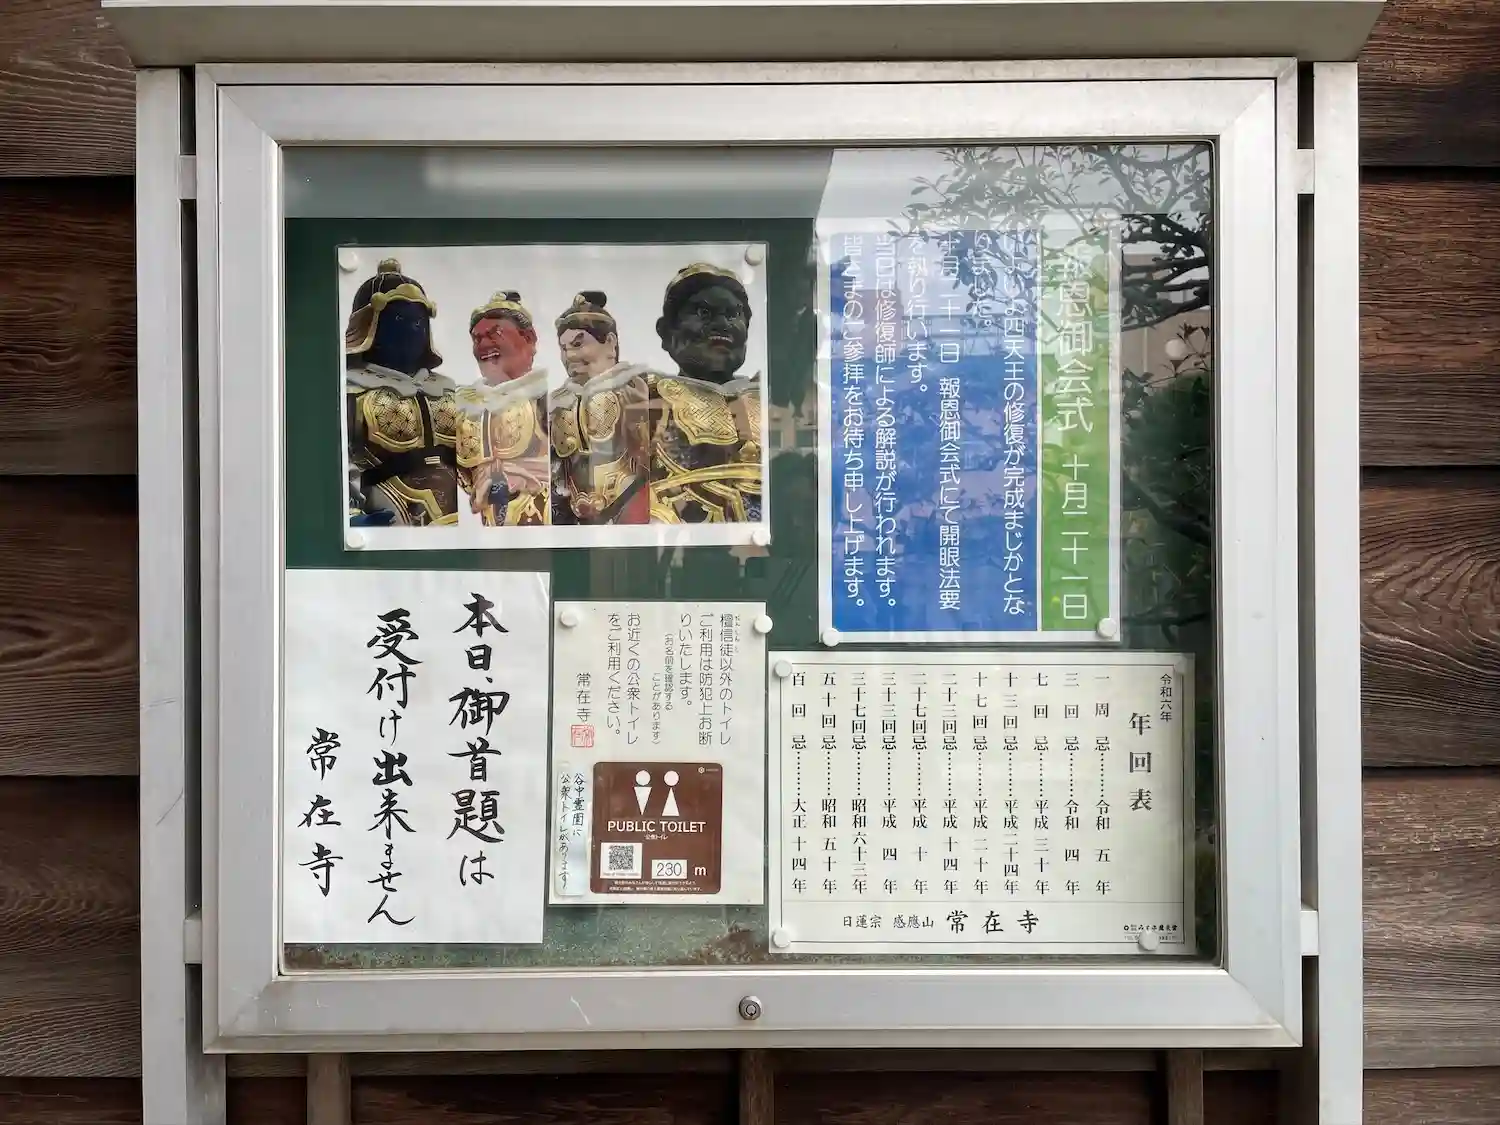 報恩御会式 十月二十一日
いよいよ四天王の修復が完成まじかとな
りました。
十月二十一日 報恩御会式にて開眼法要
を執り行います。
当日は修復師による解説が行われます。
皆さまのご参拝をお待ち申し上げます。
本日、御首題は
受付け出来ません
常在寺
檀信徒以外のトイレ
ご利用は防犯上お断
りいたします。
(お名前を確認する
ことがあります)
お近くの公衆トイレ
をご利用ください。
常在寺
谷中霊園に
公衆トイレがあります
PUBLIC TOILET
公衆トイレ
230 m
令和六年
年回表
一周忌………令和五年
三回忌………令和四年
七回忌………平成三十年
十三回忌………平成二十四年
十七回忌………平成二十年
二十三回忌………平成十四年
二十七回忌………平成十年
三十三回忌………平成四年
三十七回忌………昭和六十三年
五十回忌………昭和五十年
百回忌………大正十四年
日蓮宗 感應山 常在寺